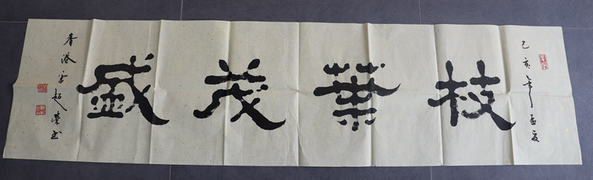 己亥年孟夏
枝葉茂盛
香港